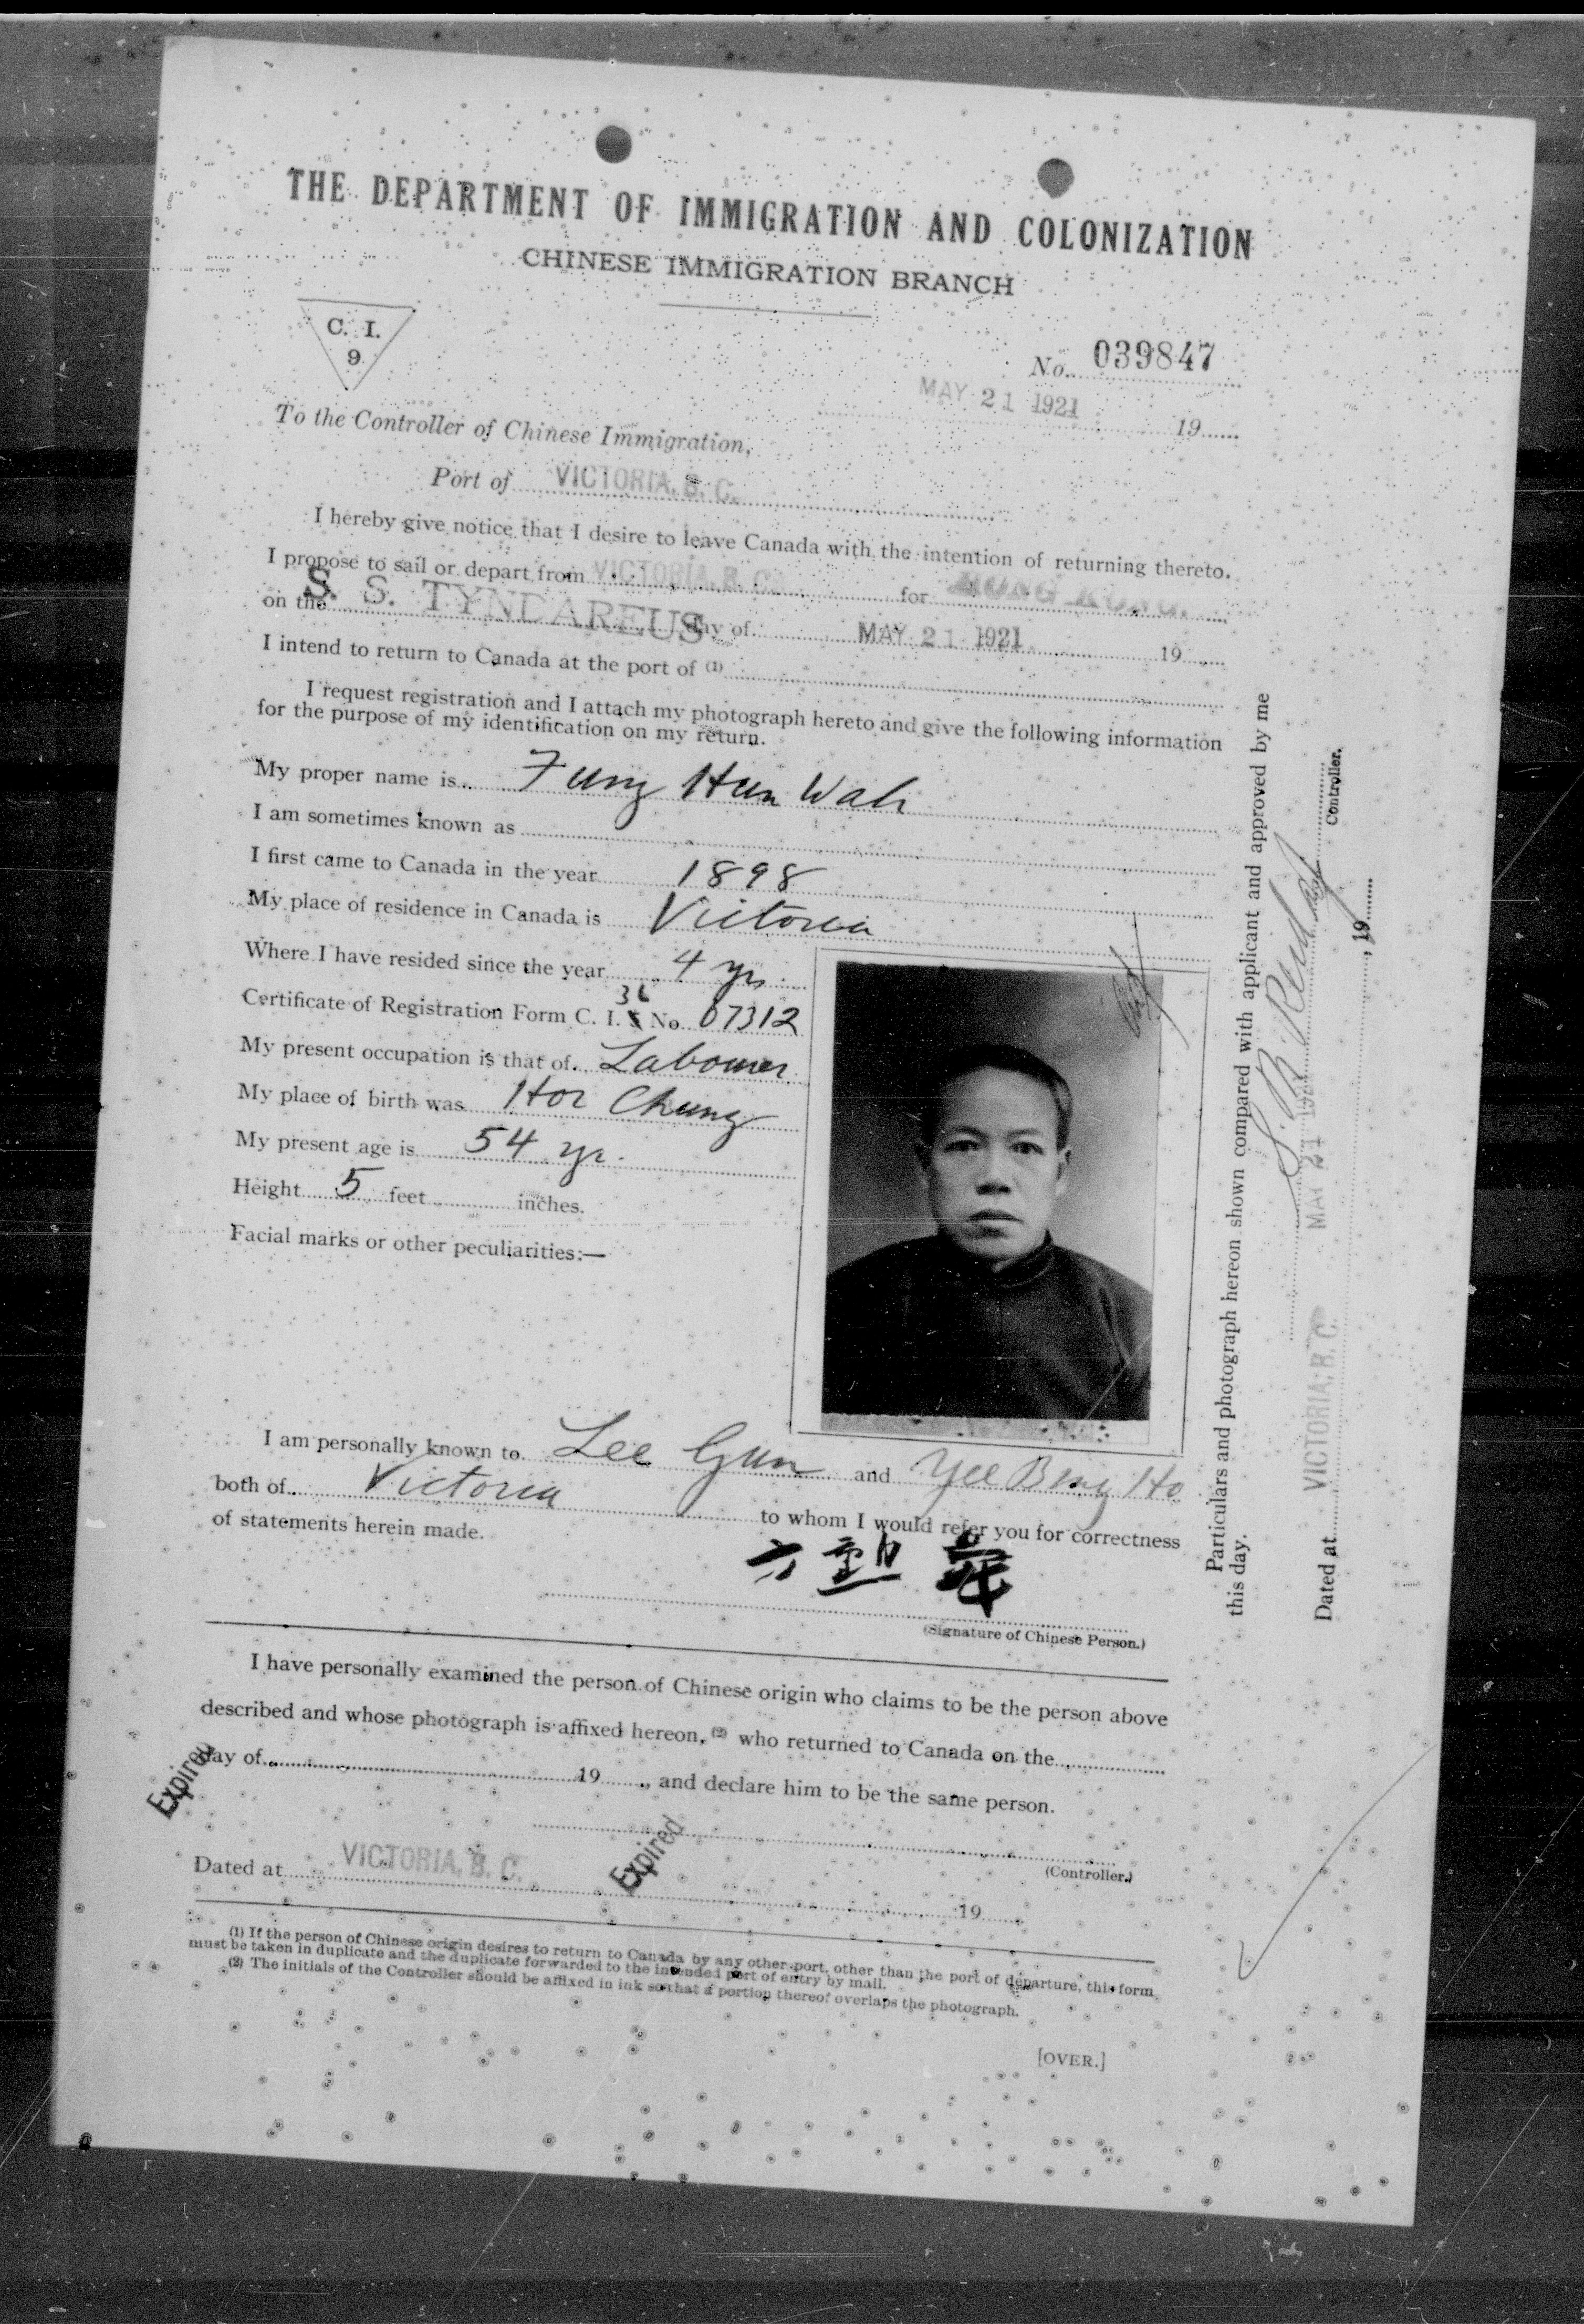 THE DEPARTMENT OF IMMIGRATION AND COLONIZATION
CHINESE IMMIGRATION BRANCH
C. I.
9
No. 039847
MAY 21 1921 19
To the Controller of Chinese Immigration,
Port of VICTORIA, B. C.
I hereby give notice that I desire to leave Canada with the intention of returning thereto.
I propose to sail or depart from VICTORIA, B. C. for HONG KONG.
on the S. S. TYNDAREUS day of MAY 21 1921 19
I intend to return to Canada at the port of (1)
I request registration and I attach my photograph hereto and give the following information
for the purpose of my identification on my return.
My proper name is Fung Hun Wah
I am sometimes known as
I first came to Canada in the year 1898
My place of residence in Canada is Victoria
Where I have resided since the year 4 yrs
Certificate of Registration Form C. I. 5 36 No. 07312
My present occupation is that of Labourer
My place of birth was Hoi Chung
My present age is 54 yr.
Height 5 feet inches.
Facial marks or other peculiarities:—
I am personally known to Lee Gun and Yee Bing Ho
both of Victoria to whom I would refer you for correctness
of statements herein made.
(Signature of Chinese Person.)
I have personally examined the person of Chinese origin who claims to be the person above
described and whose photograph is affixed hereon, (2) who returned to Canada on the
day of 19 , and declare him to be the same person.
Expired
Expired
(Controller.)
Dated at VICTORIA, B. C. 19
(1) If the person of Chinese origin desires to return to Canada by any other port, other than the port of departure, this form
must be taken in duplicate and the duplicate forwarded to the intended port of entry by mail.
(2) The initials of the Controller should be affixed in ink so that a portion thereof overlaps the photograph.
[OVER.]
Particulars and photograph hereon shown compared with applicant and approved by me
this day.
Controller.
Dated at VICTORIA, B. C. MAY 21 1921 , 19